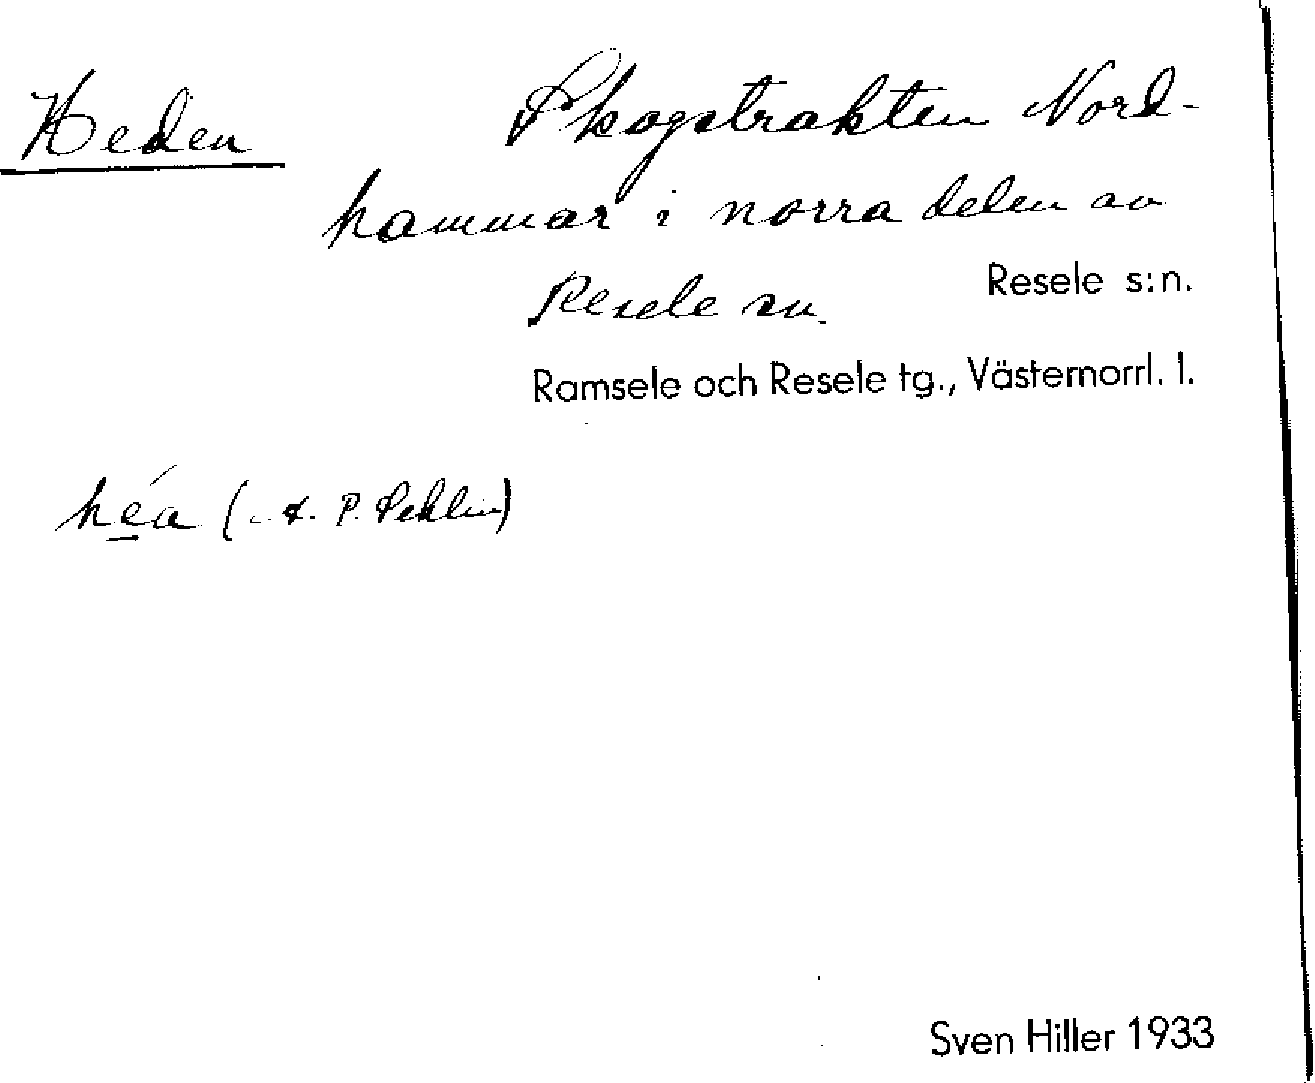 Heden Skogstrakten Nord-
hammar i norra delen av
Resele sn. Resele s:n.
Ramsele och Resele tg., Västernorrl. l.
héa ( P. Sehlin)
Sven Hiller 1933